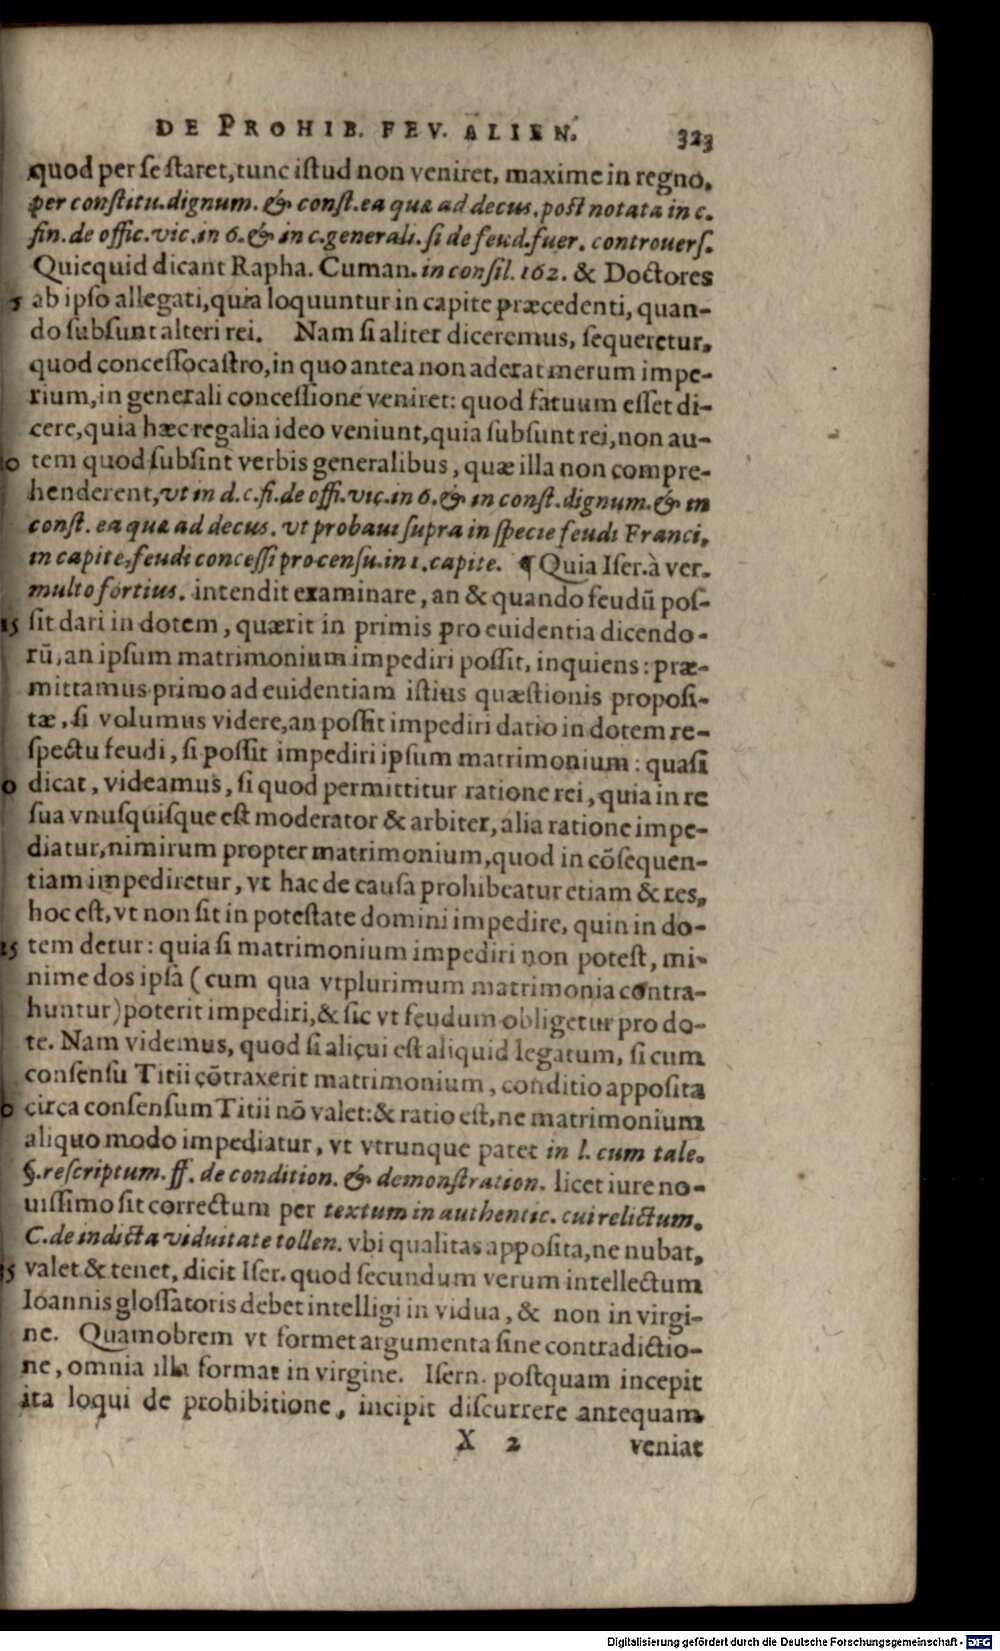 DE PROHIB. FEV. ALIEN. 323
quod per se staret, tunc istud non veniret, maxime in regno,
per constitu. dignum. & const. ea quæ ad decus. post notata in c.
fin. de offic. vic. in 6. & in c. generali. si de feud. fuer. controuers.
Quicquid dicant Rapha. Cuman. in consil. 162. & Doctores
5 ab ipso allegati, quia loquuntur in capite præcedenti, quan-
do subsunt alteri rei. Nam si aliter diceremus, sequeretur,
quod concesso castro, in quo antea non aderat merum impe-
rium, in generali concessione veniret: quod fatuum esset di-
cere, quia hæc regalia ideo veniunt, quia subsunt rei, non au-
10 tem quod subsint verbis generalibus, quæ illa non compre-
henderent, vt in d. c. fi. de offi. vic. in 6. & in const. dignum. & in
const. ea quæ ad decus. vt probaui supra in specie feudi Franci,
in capite, feudi concessi pro censu. in 1. capite. ¶ Quia Iser. à ver.
multo fortius. intendit examinare, an & quando feudū pos-
15 sit dari in dotem, quærit in primis pro euidentia dicendo-
rū, an ipsum matrimonium impediri possit, inquiens: præ-
mittamus primo ad euidentiam istius quæstionis proposi-
tæ, si volumus videre, an possit impediri datio in dotem re-
spectu feudi, si possit impediri ipsum matrimonium: quasi
0 dicat, videamus, si quod permittitur ratione rei, quia in re
sua vnusquisque est moderator & arbiter, alia ratione impe-
diatur, nimirum propter matrimonium, quod in cōsequen-
tiam impediretur, vt hac de causa prohibeatur etiam & res,
hoc est, vt non sit in potestate domini impedire, quin in do-
25 tem detur: quia si matrimonium impediri non potest, mi-
nime dos ipsa (cum qua vtplurimum matrimonia contra-
huntur) poterit impediri, & sic vt feudum obligetur pro do-
te. Nam videmus, quod si alicui est aliquid legatum, si cum
consensu Titii cōtraxerit matrimonium, conditio apposita
0 circa consensum Titii nō valet: & ratio est, ne matrimonium
aliquo modo impediatur, vt vtrunque patet in l. cum tale.
§. rescriptum. ff. de condition. & demonstration. licet iure no-
uissimo sit correctum per textum in authentic. cui relictum.
C. de indicta viduitate tollen. vbi qualitas apposita, ne nubat,
35 valet & tenet, dicit Iser. quod secundum verum intellectum
Ioannis glossatoris debet intelligi in vidua, & non in virgi-
ne. Quamobrem vt formet argumenta sine contradictio-
ne, omnia illa format in virgine. Isern. postquam incepit
ita loqui de prohibitione, incipit discurrere antequam
X 2 veniat
Digitalisierung gefördert durch die Deutsche Forschungsgemeinschaft - DFG